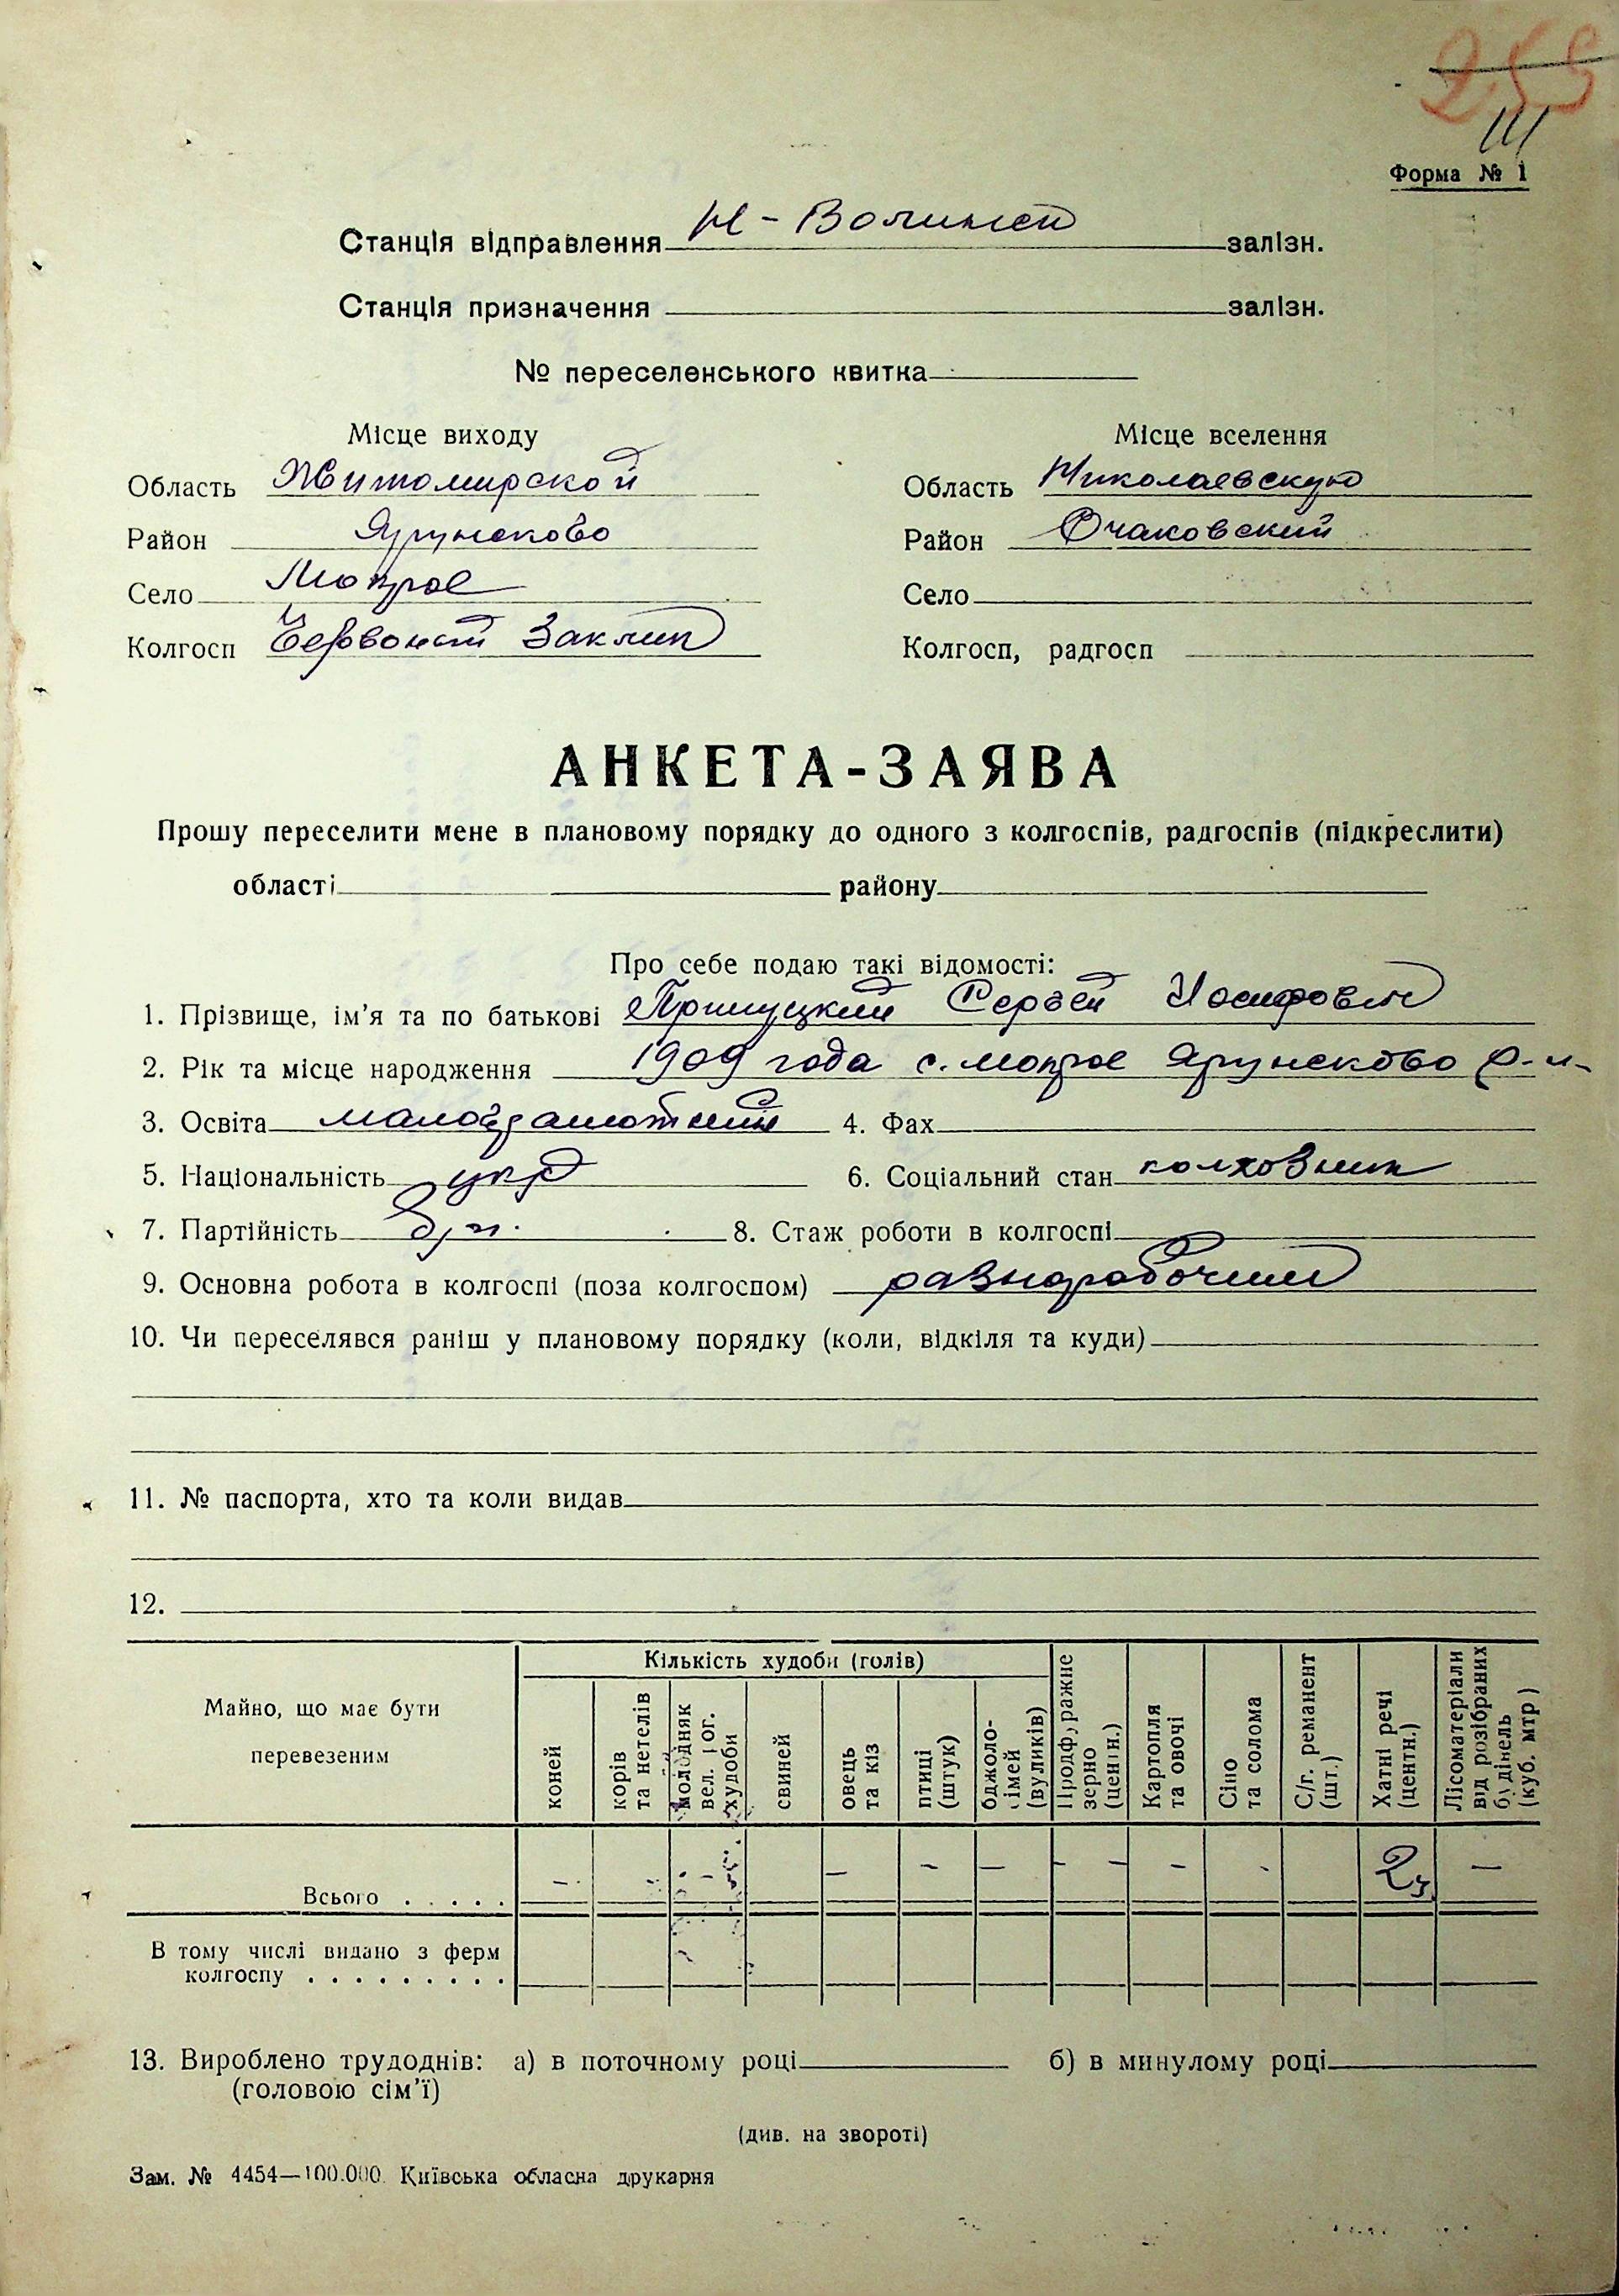 255
111
Форма № 1
Станція відправлення Н-Волинск залізн.
Станція призначення залізн.
№ переселенського квитка
Місце виходу
Область Житомирской
Район Ярунсково
Село Мокрое
Колгосп Червоный Заклик
Місце вселення
Область Николаевскую
Район Очаковский
Село
Колгосп, радгосп
АНКЕТА-ЗАЯВА
Прошу переселити мене в плановому порядку до одного з колгоспів, радгоспів (підкреслити)
області району
Про себе подаю такі відомості:
1. Прізвище, ім’я та по батькові Сергей Иосифович
2. Рік та місце народження 1909 года с. Мокрое Ярунсково р-н
3. Освіта малограмотный 4. Фах
5. Національність укр 6. Соціальний стан колхозник
7. Партійність б/п. 8. Стаж роботи в колгоспі
9. Основна робота в колгоспі (поза колгоспом) разнорабочий
10. Чи переселявся раніш у плановому порядку (коли, відкіля та куди)
11. № паспорта, хто та коли видав
12.
Майно, що має бути перевезеним
Кількість худоби (голів)
коней
корів та нетелів
молодняк вел. рог. худоби
свиней
овець та кіз
птиці (штук)
бджолосімей (вуликів)
Продфуражне зерно (центн.)
Картопля та овочі
Сіно та солома
С/г. реманент (шт.)
Хатні речі (центн.)
Лісоматеріали від розібраних будівель (куб. мтр)
Всього . . . . . – – – – – – – – 2ц –
В тому числі видано з ферм
колгоспу . . . . . . . . .
13. Вироблено трудоднів: а) в поточному році б) в минулому році
(головою сім’ї)
(див. на звороті)
Зам. № 4454—100.000 Київська обласна друкарня